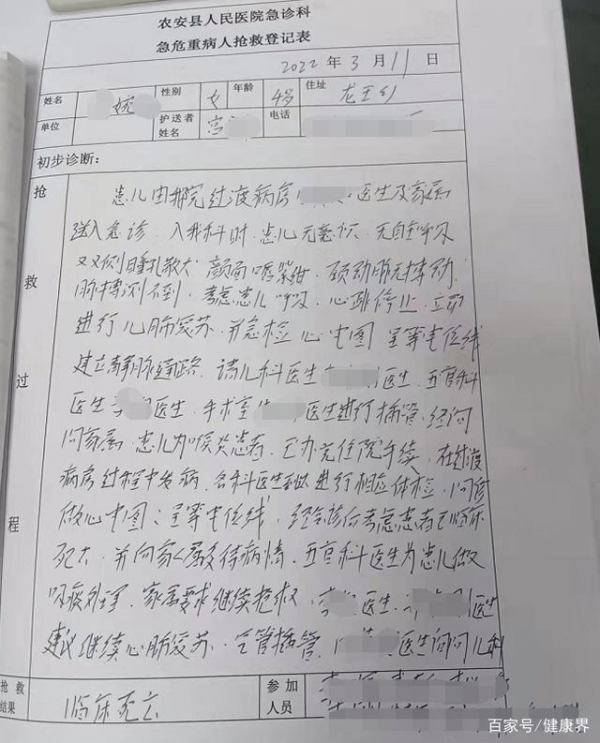 农安县人民医院急诊科
急危重病人抢救登记表
2022 年 3 月 11 日
姓名 婉 性别 女 年龄 4岁 住址 龙王乡
单位 护送者姓名 宫 电话
初步诊断：
抢救过程
患儿由我院过渡病房 医生及家属
送入急诊，入我科时，患儿无意识，无自主呼吸
双侧瞳孔散大，颜面唇紫绀，颈动脉无搏动，
脉搏测不到，考虑患儿呼吸，心跳停止，立即
进行心肺复苏，并急检心电图 呈等电位线
建立静脉通路，请儿科医生 医生，五官科
医生 医生，手术室 医生进行插管，经询
问家属，患儿为喉炎患者，已办完住院手续，在过渡
病房过程中发病，各科医生 进行相应体检，同时
做心电图：呈等电位线，经会诊后考虑患者已临床
死亡，并向家属交待病情，五官科医生为患儿做
吸痰处理，家属要求继续抢救， 医生， 医生
建议继续心肺复苏，气管插管， 医生询问儿科
抢救结果 临床死亡 参加人员
百家号/健康界